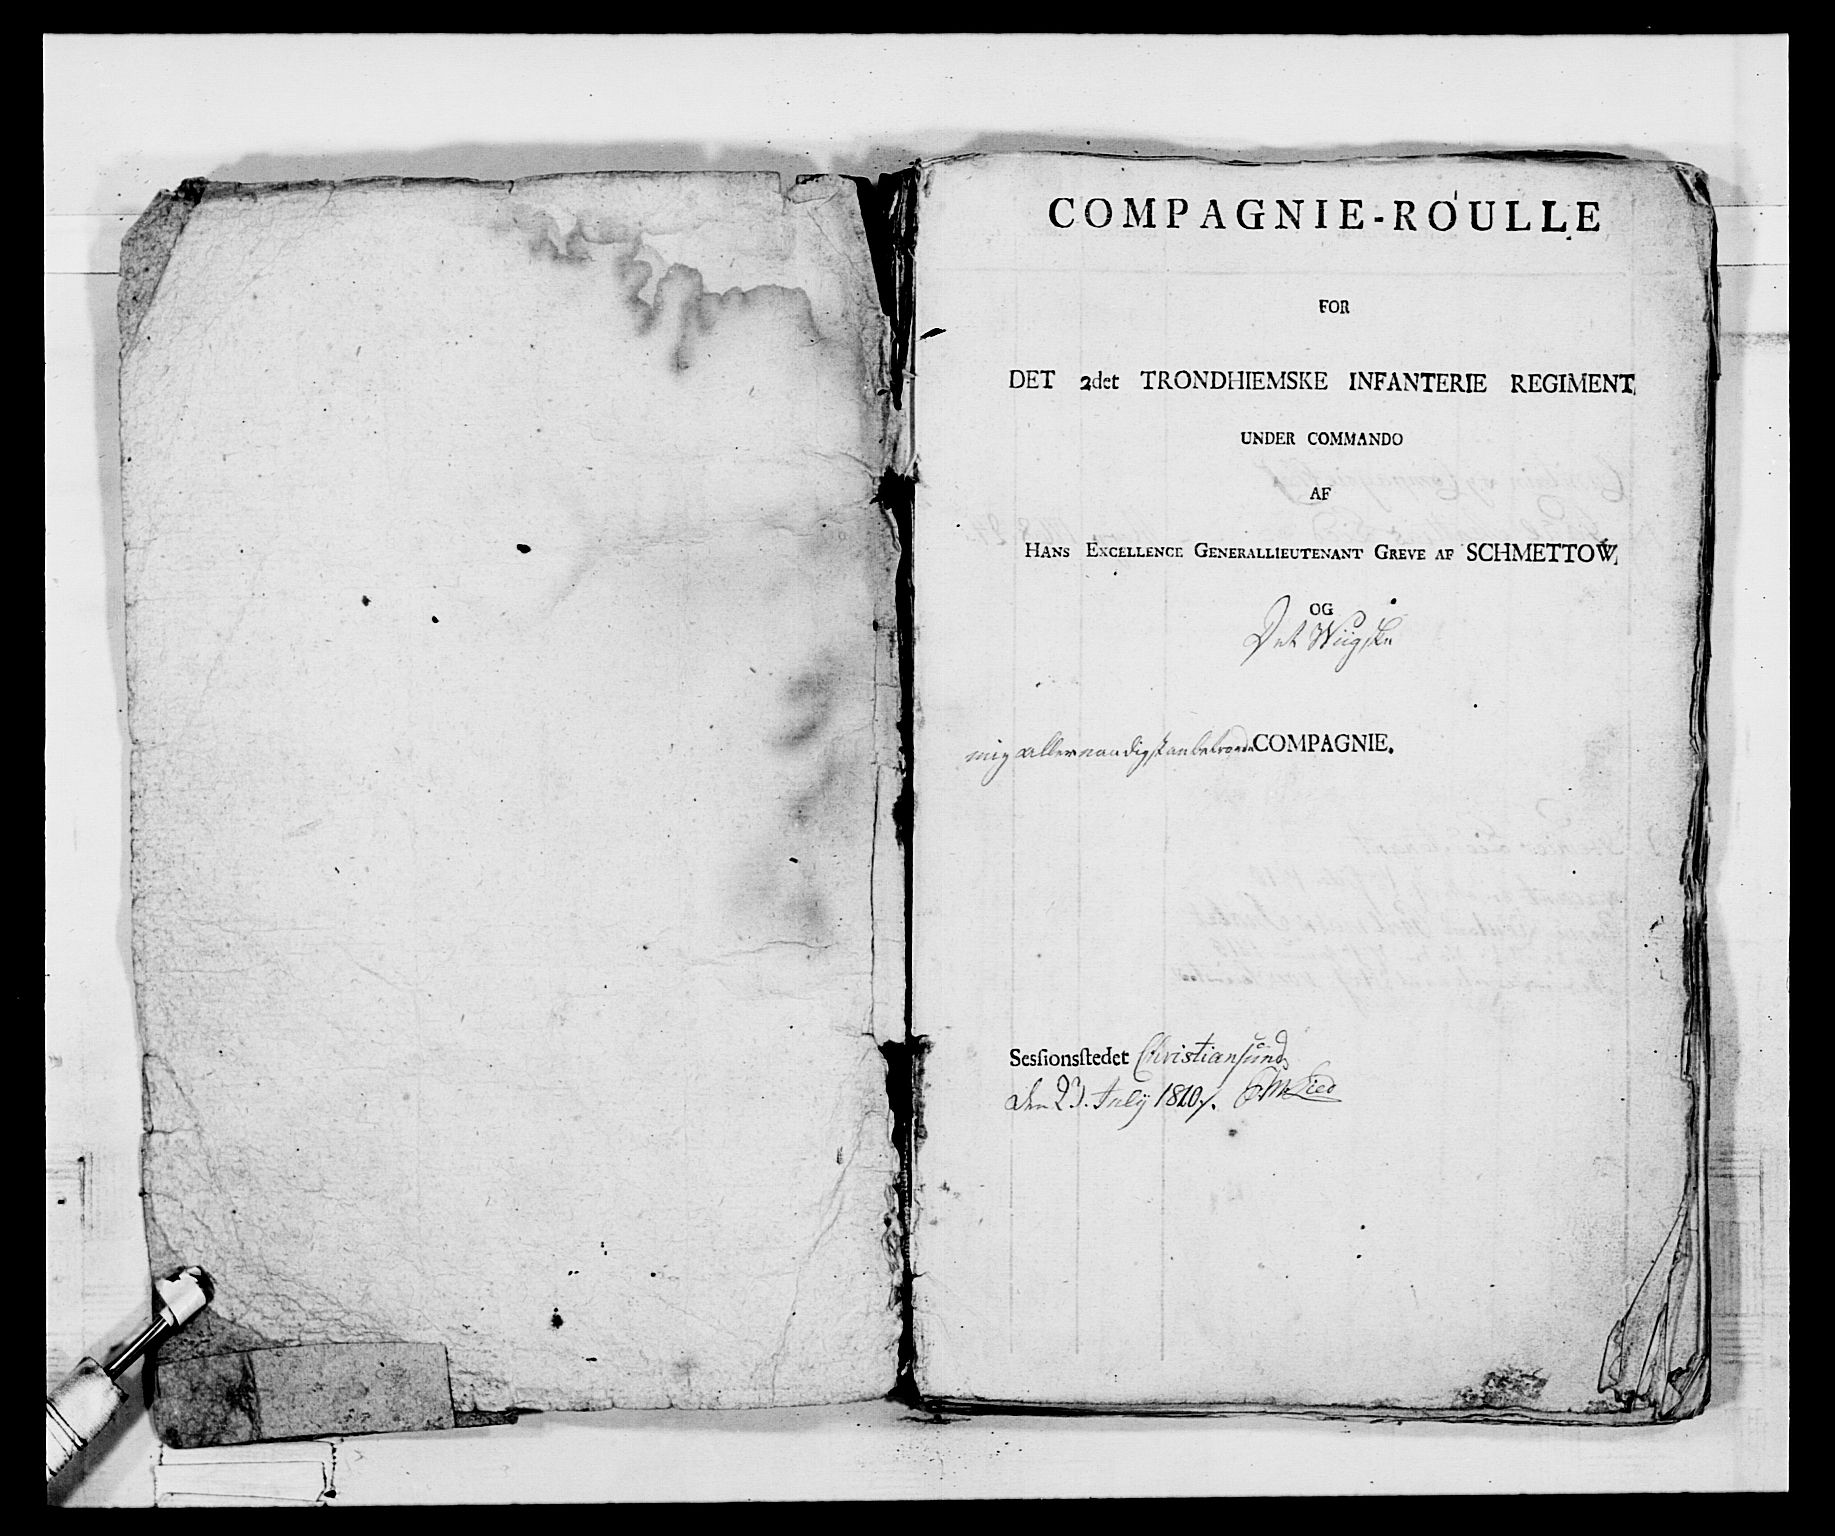 COMPAGNIE-ROULLE
FOR
DET 2det TRONDHIEMSKE INFANTERIE REGIMENT,
UNDER COMMANDO
AF
HANS EXCELLENCE GENERALLIEUTENANT GREVE AF SCHMETTOW,
OG
Det Wiigske
mig allernaadigst anbetroede COMPAGNIE.
Sesſionsſtedet Christiansund
den 23. July 1810